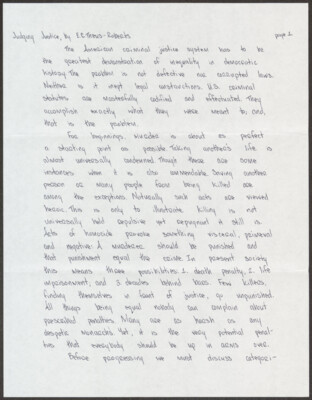 Judging Justice, by R.S. Thomas-Roberts page 2
The American criminal justice system has to be
the greatest demonstration of inequality in democratic
history. The problem is not defective or corrupted laws.
Neither is it inept legal instructions. U.S. criminal
statutes are masterfully codified and effectuated. They
accomplish exactly what they were meant to and,
that is the problem.
For beginnings, murder is about as perfect
a starting point as possible. Taking another's life is
almost universally condemned. Though there are some
instances when it is also commendable. Saving another
person or many people from being killed are
among the exceptions. Naturally such acts are viewed
heroic. This is only to illustrate killing is not
universally held repulsive yet repugnant it still is.
Acts of homicide personify something visceral, primeval
and negative. A murderer should be punished and
that punishment equal the crime. In present society
this means three possibilities: 1. death penalty, 2. life
imprisonment, and 3. decades behind bars. Few killers,
finding themselves in front of justice, go unpunished.
All things being equal nobody can complain about
perceived penalties. Many are as harsh as any
despotic monarchs. Yet, it is the very potential penal-
ties that everybody should be up in arms over.
Before progressing we must discuss categori-